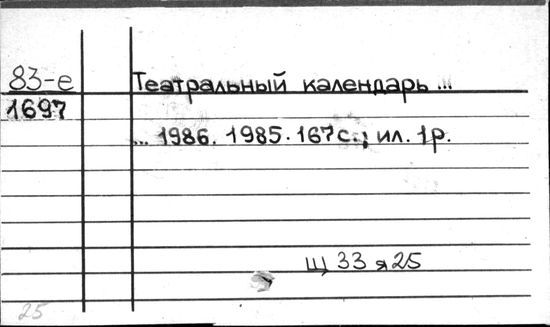 83-е Театральный календарь ...
1697
... 1986. 1985. 167с.; ил. 1р.
Щ 33 я 25
25